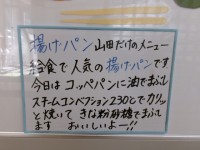 揚げパン 山田だけのメニュー
給食で人気の揚げパンです
今日は コッペパンに油でまぶし
スチームコンベクション230とで カリッ
と焼いて きな粉砂糖でまぶし
ます おいしいよー!!